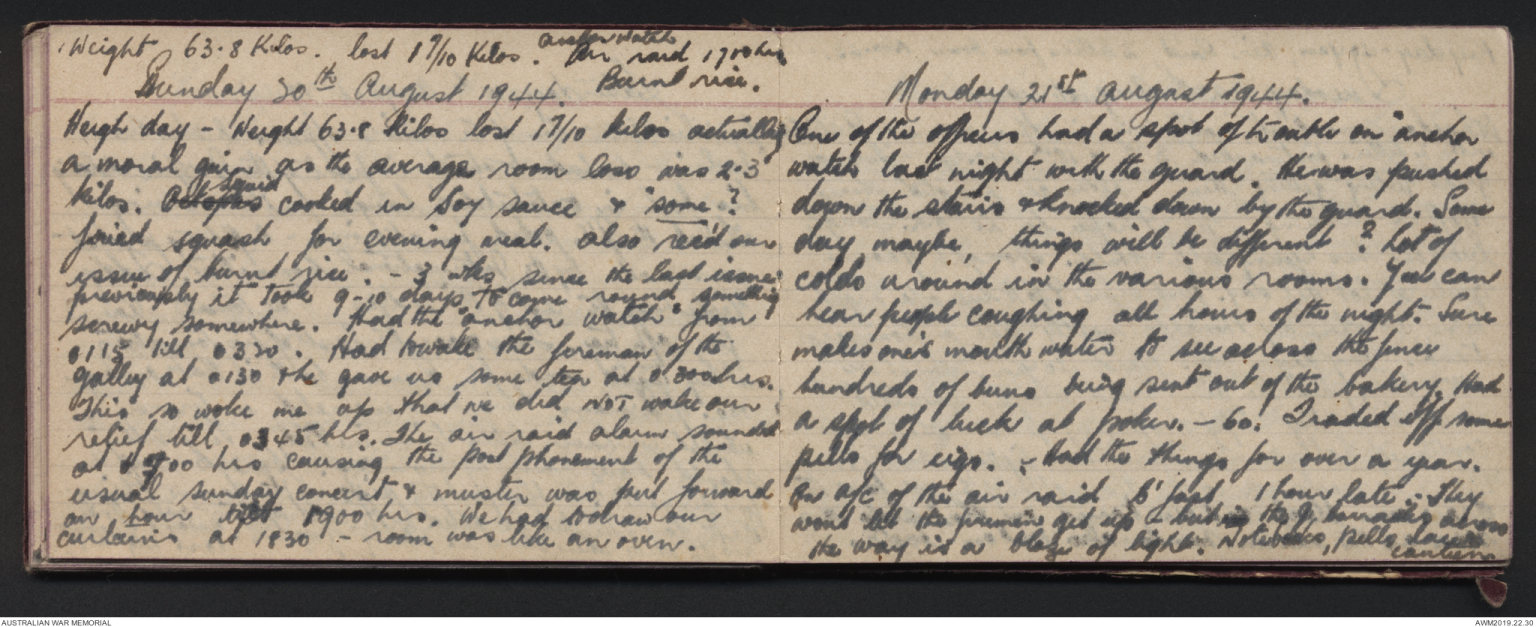 Weight 63.8 Kilos. lost 1 7/10 Kilos. anchor watch
Air raid 1710 hrs
Burnt rice.
Sunday 20th August 1944.
Weigh day - Weight 63.8 Kilos lost 1 7/10 kilos actually
a moral gain as the average room loss was 2.3
kilos. Octopus squid cooked in Soy sauce & "some?
fried squash for evening meal. also rec'd our
issue of burnt rice. - 3 wks since the last issue
previously it took 9-10 days to come round something
screwy somewhere. Had the "anchor watch" from
0115 till 0330. Had to wake the foreman of the
galley at 0130 & he gave us some tea at 0300 hrs.
This so woke me up that we did NOT wake our
relief till 0345 hrs. The air raid alarm sounded
at 1700 hrs causing the postphonement of the
usual sunday concert, & muster was put forward
an hour 1900 hrs. We had to draw our
curtains at 1830 - room was like an oven.
Monday 21st august 1944.
One of the officers had a spot of trouble on "anchor
watch last night with the guard. He was pushed
down the stairs & knocked down by the guard. Some
day maybe, things will be different? Lot of
colds around in the various rooms. You can
hear people coughing all hours of the night. Sure
makes one's mouth water to see across the fence
hundreds of buns being sent out of the bakery. Had
a spot of luck at poker. - 60. Traded off some
pills for cigs. - Had the things for over a year.
On a/c of the air raid b'fast 1 hour late. - They
wont let the firemen get up - but the g barracks across
the way is a blaze of light. Notebooks, pills,
canteen